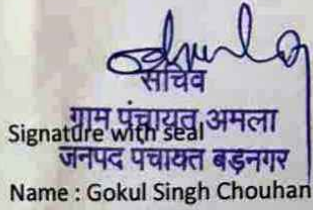 सचिव
ग्राम पंचायत अमला
Signature with seal
जनपद पंचायत बड़नगर
Name : Gokul Singh Chouhan